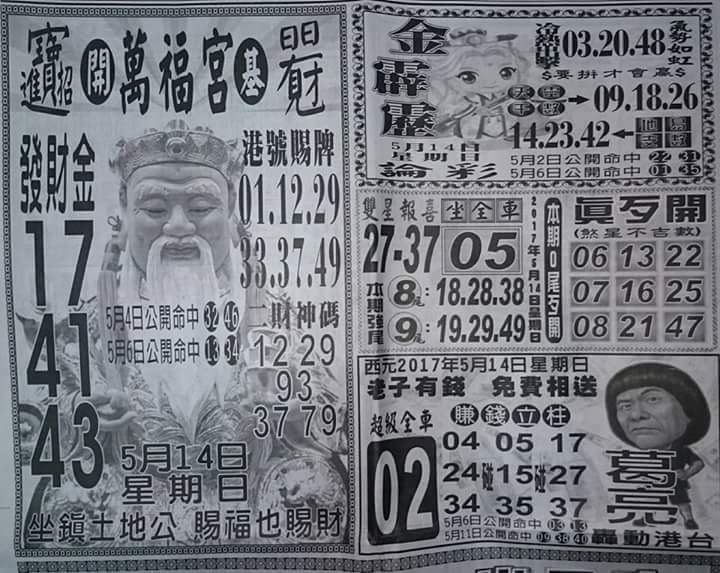 招寶進
開
萬福宮
基
發財金
17
41
43
港號賜牌
01.12.29
33.37.49
5月4日公開命中 32 46
5月6日公開命中 13 34
二財神碼
12 29
93
37 79
5月14日
星期日
坐鎮土地公 賜福也賜財
金霹靂
5月14日
星期日
論彩
03.20.48
氣勢如虹
$要拼才會贏$
09.18.26
14.23.42
5月2日公開命中 22 31
5月6日公開命中 01 35
雙星報喜
27-37
坐全車
05
本期發尾
8尾:18.28.38
9尾:19.29.49
2017年5月14日星期日
本期0尾歹開
真歹開
(煞星不吉數)
06 13 22
07 16 25
08 21 47
西元2017年5月14日星期日
老子有錢 免費相送
超級全車
02
賺錢立柱
04 05 17
24碰15碰27
34 35 37
5月6日公開命中 03 13
5月11日公開命中 09 38 40
葛亮
轟動港台